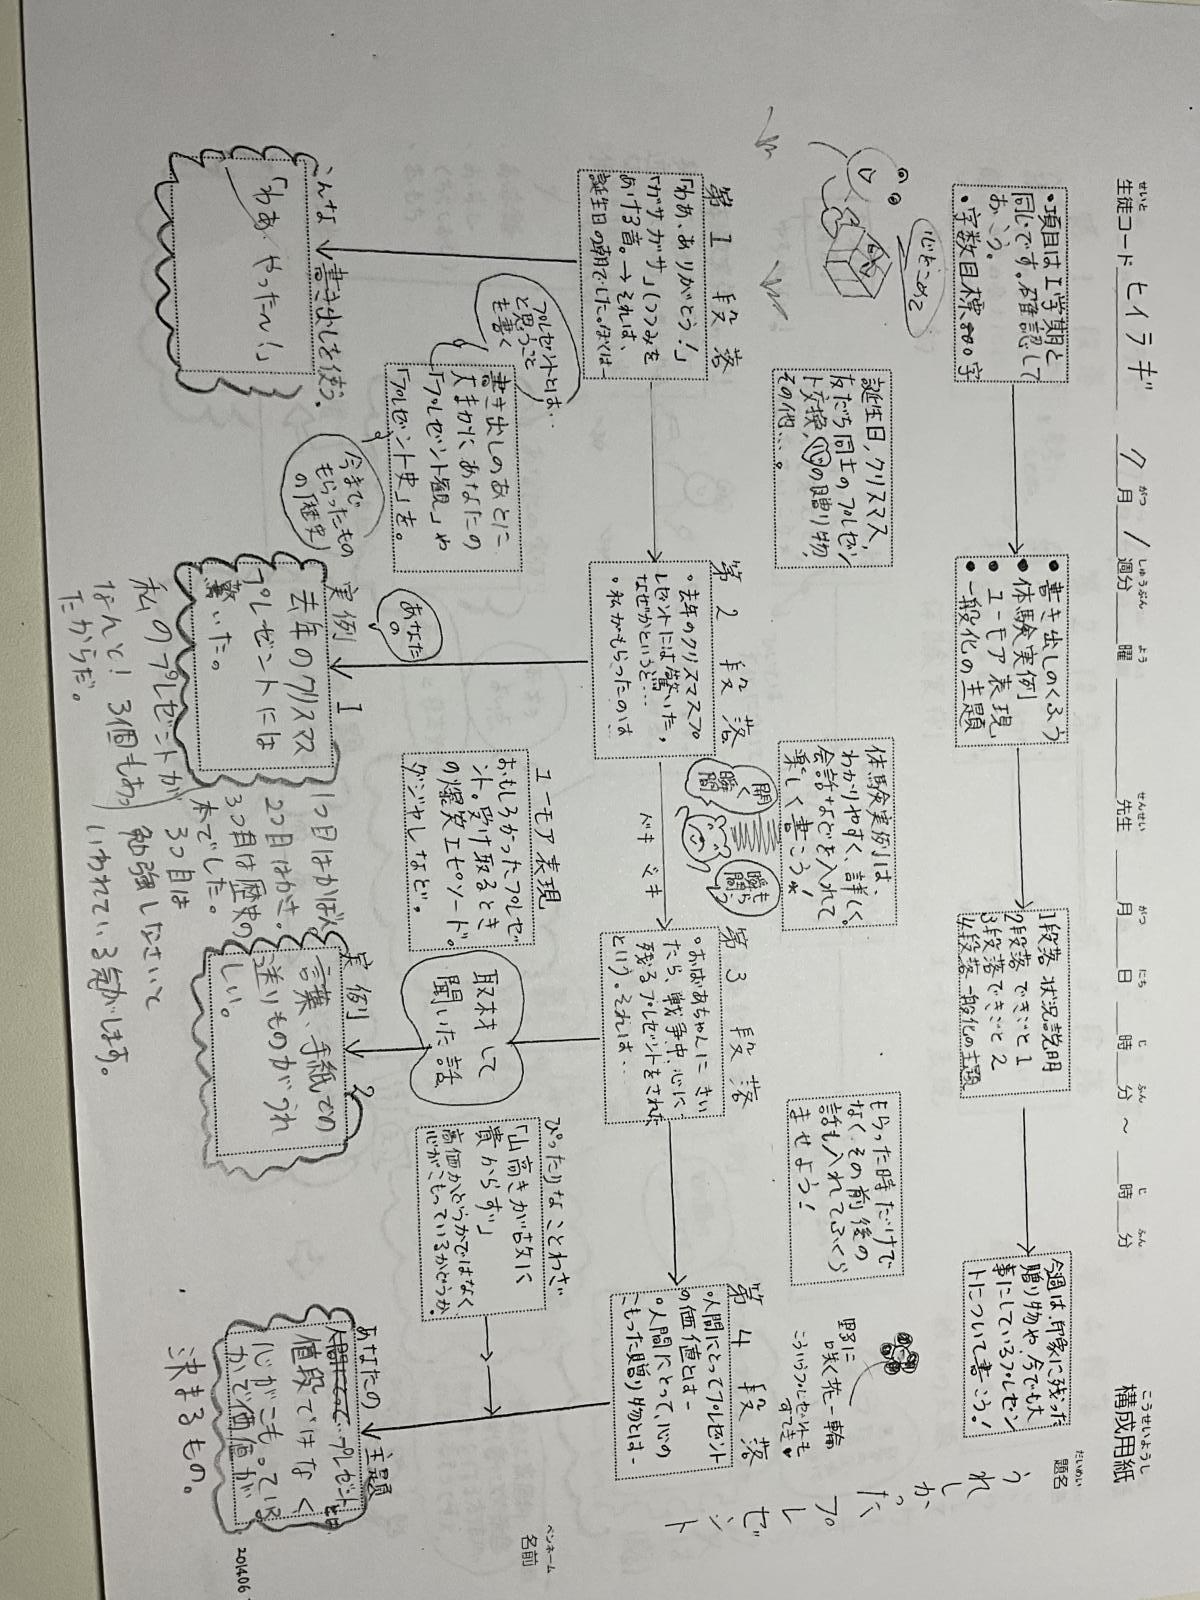 構成用紙
こうせいようし
生徒コード ヒイラギ ク月 1週分 曜 先生 月 日 時 分 ～ 時 分
せいと がつ しゅうぶん よう せんせい がつ にち じ ふん じ ふん
題名
だいめい
うれしかったプレゼント
ペンネーム
名前
・項目は1学期と
同じです。確認して
おこう。
・字数目標800字
・書き出しのくふう
・体験実例
・ユーモア表現
・一般化の主題
1段落 状況説明
2段落 できごと1
3段落 できごと2
4段落 一般化の主題
今週は、印象に残った
贈り物や、今でも大
事にしているプレゼン
トについて書こう！
心をこめて
誕生日、クリスマス、
友だち同士のプレゼン
ト交換、心の贈り物、
その他…。
体験実例は、
わかりやすく、詳しく。
会話などを入れて
楽しく書こう。
開く
瞬間
もらった時だけで
なく、その前後の
話も入れてふくら
ませよう！
野に
咲く花一輪
こういうプレゼントも
すてき
第1段落
「わあ、ありがとう！」
「ガサガサ」(つつみを
あける音。→それは、
誕生日の朝でした。ぼくは―
第2段落
・去年のクリスマスプ
レゼントには驚いた。
なぜかというと…
・私がもらったのは
ドキドキ
第3段落
・おばあちゃんにきい
たら、戦争中、心に
残るプレゼントをされた
という。それは…
第4段落
・人間にとってプレゼント
の価値とは―
・人間にとって、心の
こもった贈り物とは―
プレゼントとは…
と思うこと
を書く
書き出しのあとに
大まかに、あなたの
「プレゼント観」や
「プレゼント史」を。
今まで
もらったもの
の「歴史」
あなた
の
ユーモア表現
おもしろかったプレゼ
ント。受け取るとき
の爆笑エピソード。
ダジャレなど。
取材して
聞いた話
ぴったりなことわざ
「山高きが故に
貴からず」
高価かどうかではなく
心がこもっているかどうか。
こんな書き出しを使う。
「わあ、やったー！」
実例1
去年のクリスマス
プレゼントには
驚いた。
私のプレゼントが
なんと！3個もあっ
たからだ。
1つ目はかばん
2つ目はかさ。
3つ目は歴史の
本でした。
3つ目は
勉強しなさいと
いわれている気がします。
実例2
言葉、手紙での
送りものがうれ
しい。
あなたの主題
プレゼントとは
値段ではなく
心がこもっている
かで価値が
決まるもの。
201406